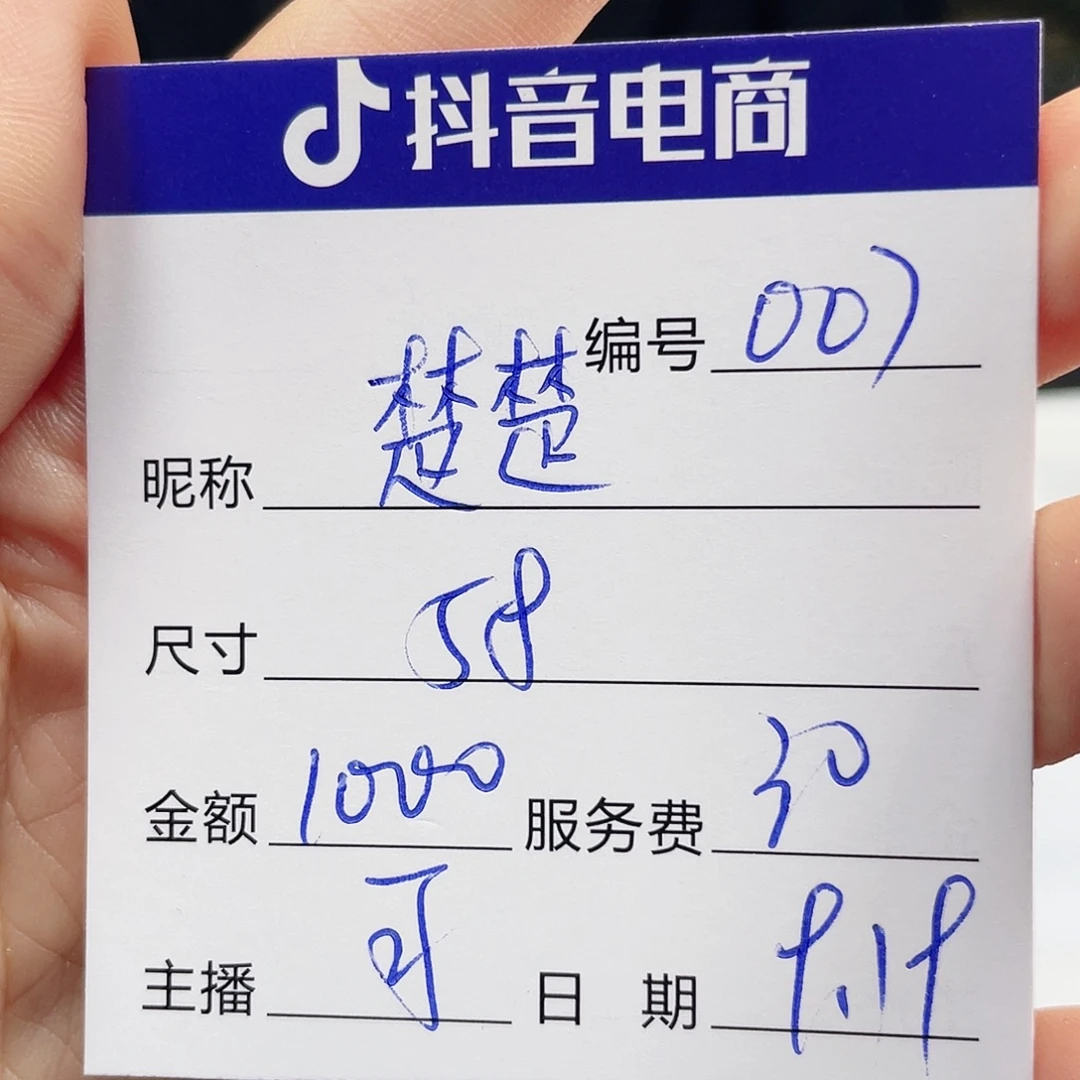 抖音电商
编号 007
昵称 楚楚
尺寸 58
金额 1000 服务费 30
主播 可 日 期 8.18